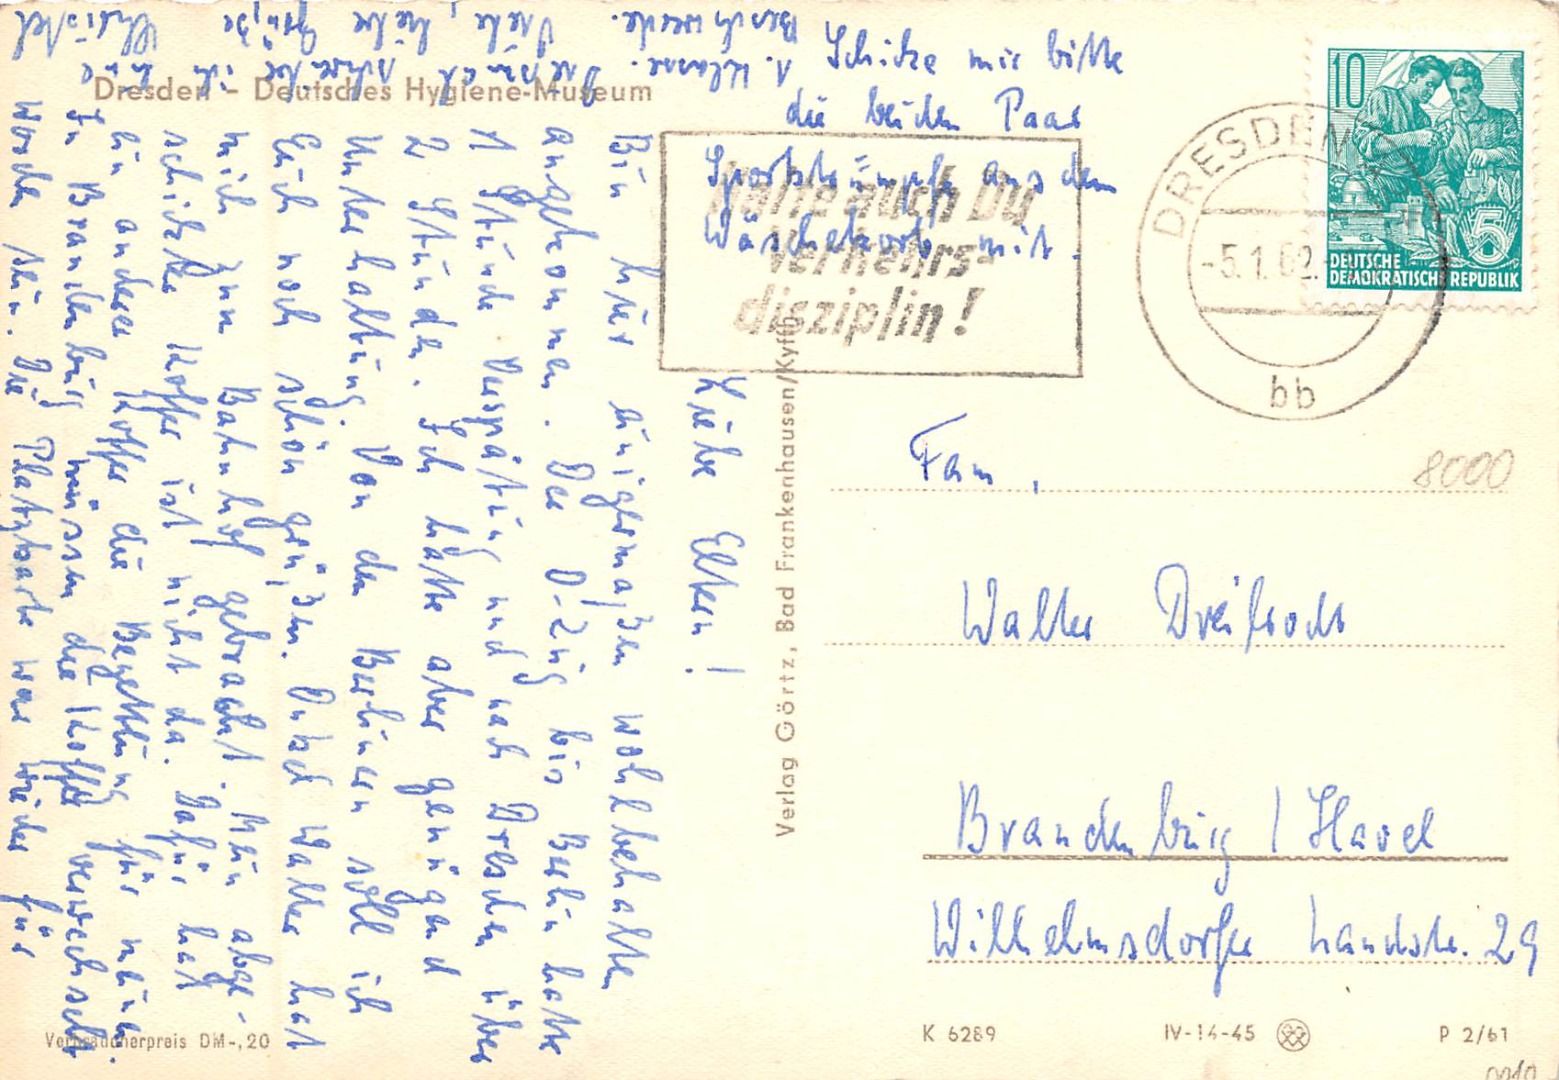 Dresden - Deutsches Hygiene-Museum
Liebe Eltern!
Bin hier einigermaßen wohlbehalten
angekommen. Der D-Zug bis Berlin hatte
1 Stunde Verspätung und nach Dresden über
2 Stunden. Ich hatte aber genügend
Unterhaltung. Von den Berlinern soll ich
Euch noch schön grüßen. Onkel Walter hat
mich zum Bahnhof gebracht. Mein abge-
schickter Koffer ist nicht da. Dafür hat
ein anderer Koffer die Begleitung für meinen.
In Brandenburg müssen die Koffer verwechselt
worden sein. Die Platzkarte war wieder für
1. Klasse. Diesmal schwenke ich eine
Beschwerde. Viele, liebe Grüße
Christel
Schicke mir bitte
die beiden Paar
Sportstrümpfe aus dem
Wäschekorb mit.
Halte auch Du
Verkehrs-
disziplin!
DRESDEN
-5.1.62.
bb
10
5
DEUTSCHE
DEMOKRATISCHE REPUBLIK
8000
Fam.
Walter
Brandenburg / Havel
Wilhelmsdorfer Landstr. 29
Verlag Görtz, Bad Frankenhausen/Kyffh.
Verbraucherpreis DM -,20
K 6289
IV-14-45
P 2/61